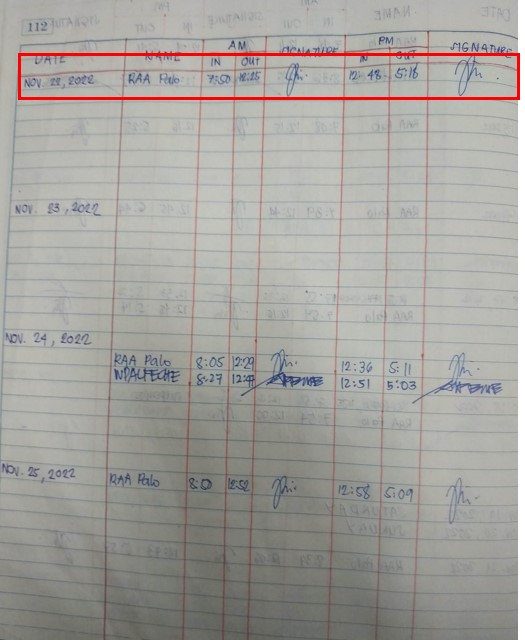 112
AM PM
DATE NAME IN OUT SIGNATURE IN OUT SIGNATURE
NOV. 22, 2022 RAA Palo 7:50 12:25 12:48 5:16
NOV. 23, 2022
NOV. 24, 2022
RAA Palo 8:05 12:29 12:36 5:11
8:27 12:51 5:03
NOV. 25, 2022 RAA Palo 12:52 12:58 5:09